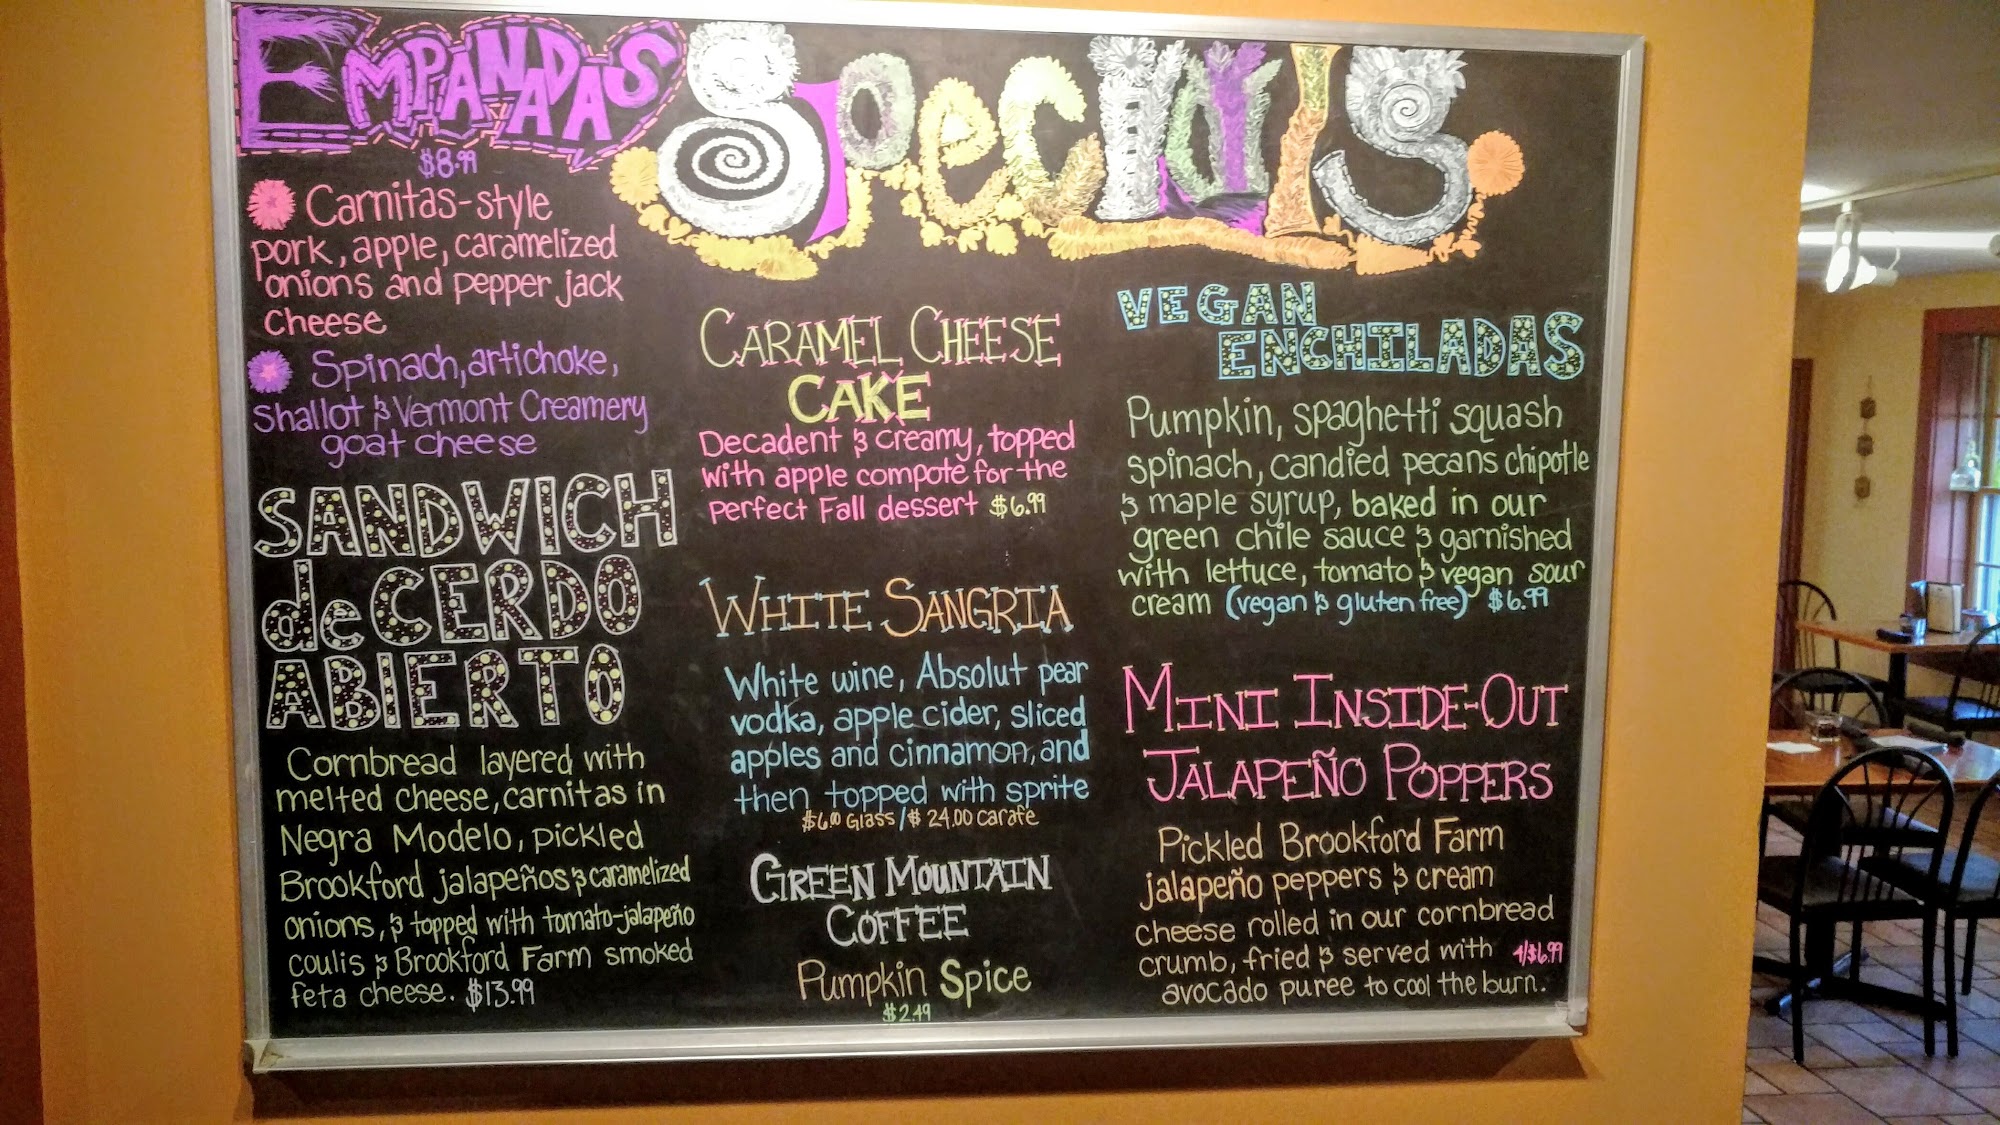 EMPANADAS
$8.99
Carnitas-style
pork, apple, caramelized
onions and pepper jack
cheese
Spinach, artichoke,
shallot & Vermont Creamery
goat cheese
SANDWICH
de CERDO
ABIERTO
Cornbread layered with
melted cheese, carnitas in
Negra Modelo, pickled
Brookford jalapeños & caramelized
onions, & topped with tomato-jalapeño
coulis & Brookford Farm smoked
feta cheese. $13.99
Specials
CARAMEL CHEESE
CAKE
Decadent & creamy, topped
with apple compote for the
perfect Fall dessert $6.99
WHITE SANGRIA
White wine, Absolut pear
vodka, apple cider, sliced
apples and cinnamon, and
then topped with sprite
$6.00 Glass/$24.00 carafe
GREEN MOUNTAIN
COFFEE
Pumpkin Spice
$2.49
VEGAN
ENCHILADAS
Pumpkin, spaghetti squash
spinach, candied pecans chipotle
& maple syrup, baked in our
green chile sauce & garnished
with lettuce, tomato & vegan sour
cream (vegan & gluten free) $6.99
MINI INSIDE-OUT
JALAPEÑO POPPERS
Pickled Brookford Farm
jalapeño peppers & cream
cheese rolled in our cornbread
crumb, fried & served with 4/$6.99
avocado puree to cool the burn.